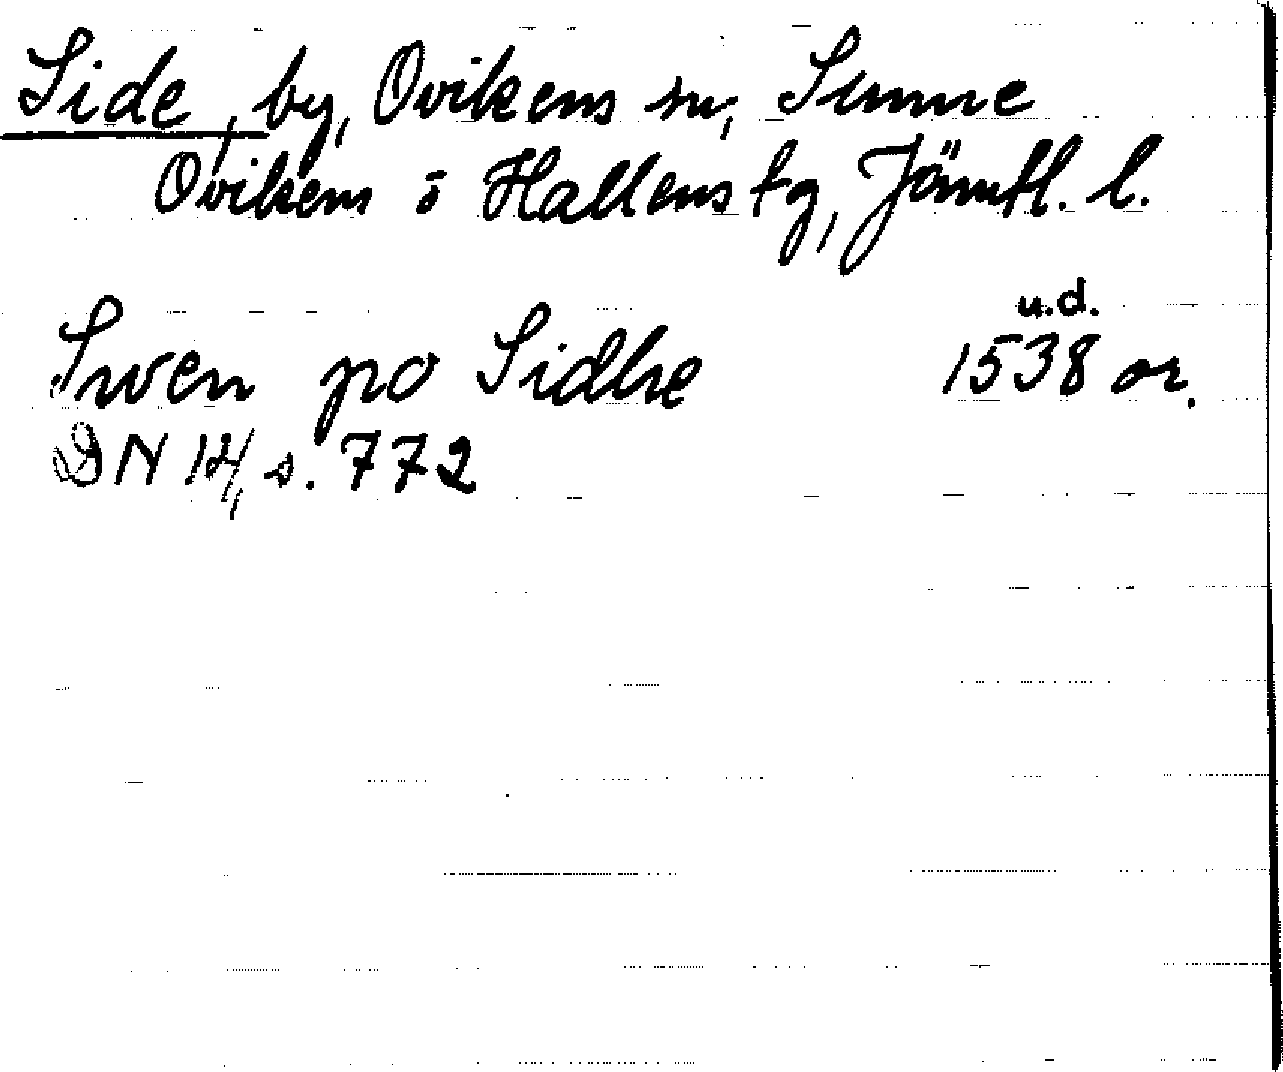 Side, by, Ovikens sn, Sunne
Ovikens o Hallens tg, Jämtl. l.
Swen po Sidhe u.d. 1538 or.
DN 14, s. 772